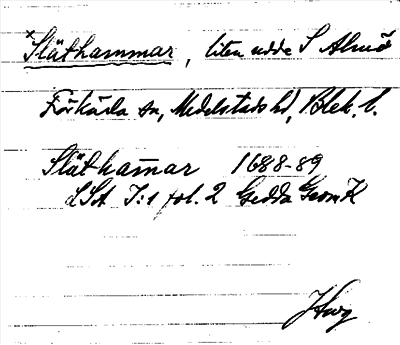 ×Släthammar, liten udde S Almö
Förkärla sn, Medelstads hd, Blek. l.
Släthamar 1688-89
LSA I:1 fol. 2 Gedda GeomK